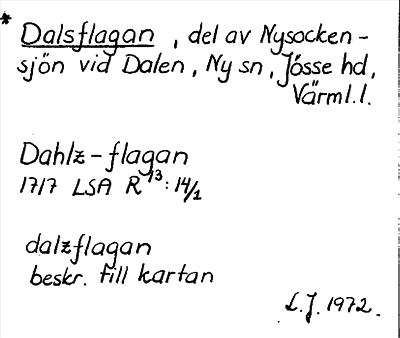 * Dalsflagan, del av Nysocken-
sjön vid Dalen, Ny sn, Jösse hd,
Värml. l.
Dahlz-flagan
1717 LSA R 13:14/1
dalzflagan
beskr. till kartan
L.J. 1972.